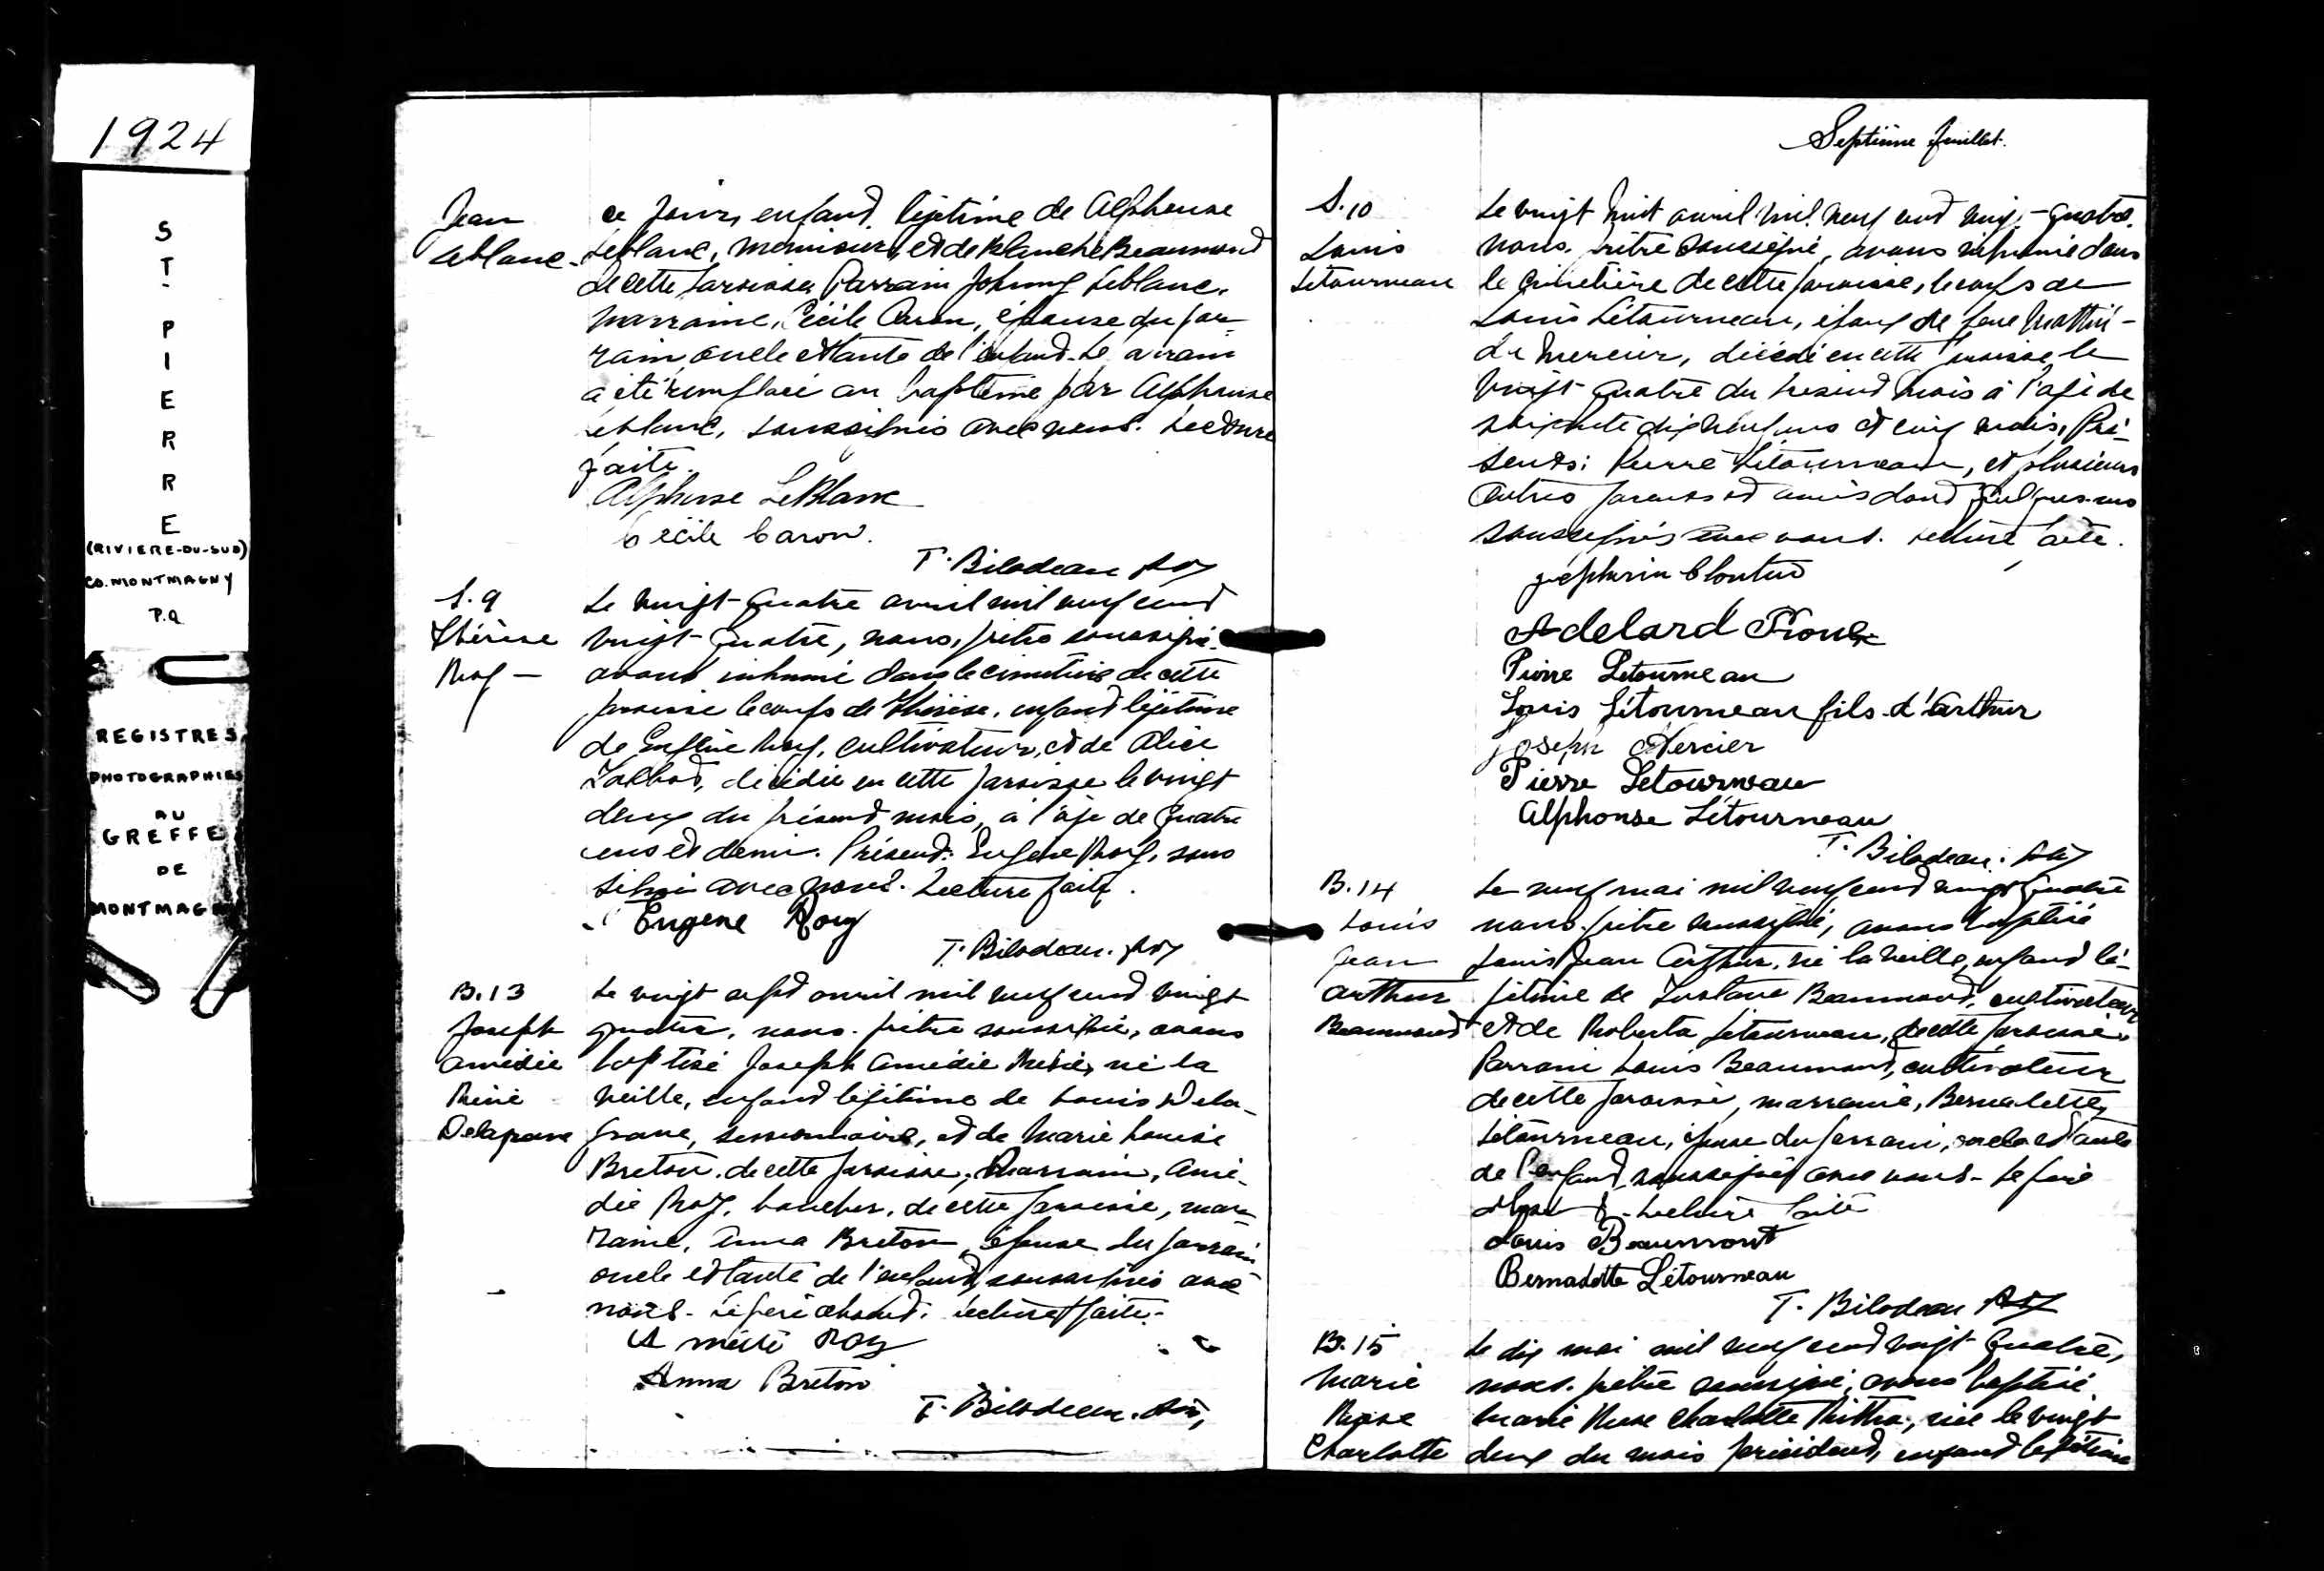 1924
ST-PIERRE
(RIVIERE-DU-SUD)
CO. MONTMAGNY
P.Q
REGISTRES
PHOTOGRAPHIES
AU
GREFFE
DE
MONTMAGNY
Jean
Leblanc
ce jour, enfant légitime de Alphonse
Leblanc, menuisier, et de Blanche Beaumond
de cette paroisse. Parrain Johnny Leblanc,
marraine, Cécile Caron, épouse du par-
rain, oncle et tante de l'enfant. Le parrain
a été remplacé au baptême par Alphonse
Leblanc, soussignés avec nous. Lecture
faite.
Alphonse LeBlanc
Cécile Caron.
T. Bilodeau Ptre
S. 9
Thérèse
Roy -
Le vingt-quatre avril mil neuf cent
vingt-quatre, nous, prêtre soussigné
avons inhumé dans le cimetière de cette
paroisse le corps de Thérèse, enfant légitime
de Eugène Roy, cultivateur, et de Alice
Talbot, décédée en cette paroisse le vingt
deux du présent mois, à l'âge de quatre
ans et demi. Présent: Eugène Roy, sous
signé avec nous. Lecture faite.
Eugene Roy
T. Bilodeau. Ptre
B. 13
Joseph
Amédée
René
Delagrave
Le vingt sept avril mil neuf cent vingt
quatre, nous, prêtre soussigné, avons
baptisé Joseph Amédée René, né la
veille, enfant légitime de Louis Dela-
grave, , et de Marie Louise
Breton, de cette paroisse; Parrain, Amé-
dée Roy, boucher, de cette paroisse, mar-
raine, Anna Breton, épouse du parrain
oncle et tante de l'enfant, soussignés avec
nous. Le père absent. Lecture faite.
Amédé Roy
Anna Breton
T. Bilodeau. Ptre
Septième feuillet.
S. 10
Louis
Létourneau
Le vingt huit avril mil neuf cent vingt-quatre,
nous, prêtre soussigné, avons inhumé dans
le cimetière de cette paroisse, le corps de
Louis Létourneau, époux de feue Mathil-
de Mercier, décédé en cette paroisse le
vingt quatre du présent mois à l'âge de
soixante dix neuf ans et cinq mois, Pré-
sents: Pierre Létourneau, et plusieurs
autres parents et amis dont quelques-uns
soussignés avec nous. Lecture faite.
Zéphirin Cloutier
Adelard Proulx
Pierre Letourneau
Louis Létourneau fils d'Arthur
Joseph Mercier
Pierre Letourneau
Alphonse Létourneau
T. Bilodeau. Ptre
B. 14
Louis
Jean
Arthur
Beaumond
Le neuf mai mil neuf cent vingt quatre
nous, prêtre soussigné, avons baptisé
Louis Jean Arthur, né la veille, enfant lé-
gitime de Gustave Beaumond, cultivateur
et de Roberta Létourneau, de cette paroisse.
Parrain Louis Beaumond, cultivateur
de cette paroisse, marraine, Bernadette
Létourneau, épouse du parrain, oncle et tante
de l'enfant, soussignés avec nous. Le père
absent. Lecture faite
Louis Beaumont
Bernadette Létourneau
T. Bilodeau Ptre
B. 15
Marie
Rose
Charlotte
Le dix mai mil neuf cent vingt quatre,
nous, prêtre soussigné, avons baptisé
Marie Rose Charlotte , née le vingt
deux du mois précédent, enfant légitime